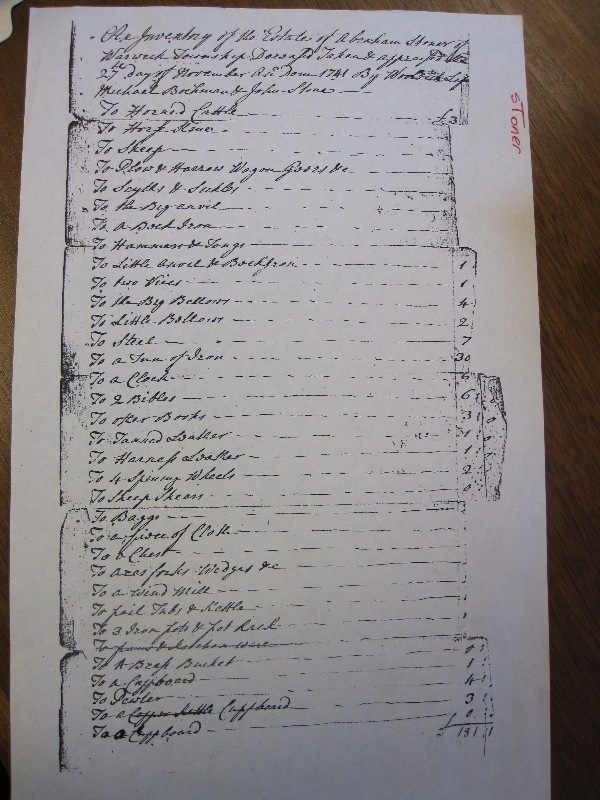 An Inventory of the Estate of Abraham Stoner of
Warwick Township Deceas'd Taken & appraised the
27th day of November An: Dom: 1741 By
Michael Bochman & John Stoner
To Horned Cattle £3
To Horse
To Sheep
To Plow & Harrow Wagon Goers &c
To Scyths & Sickles
To the Big anvil
To a Beck Iron
To Hammers & Tongs
To Little anvil & Beck Iron 1
To two Vices 1
To the Big Bellows 4
To Little Bellows 2
To Steel 7
To a Tun of Iron 30
To a Clock 6
To 2 Bibles 6
To other Books 3
To Tanned Leather 1
To Harness Leather 1
To 4 Spining Wheels 2
To Sheep Shears 0
To Baggs
To a piece of Cloth
To a Chest
To axes forks Wedges &c
To a Wind Mill
To pail Tubs & Kettle
To 3 Iron pots & Pot Rack
To & Kitchen ware
To A Brass Bucket 0
To a Cuppboard 1
To Pewter 4
To a Copper Kettle Cuppboard 3
To a Cuppboard 0
£ 131 1
STONER